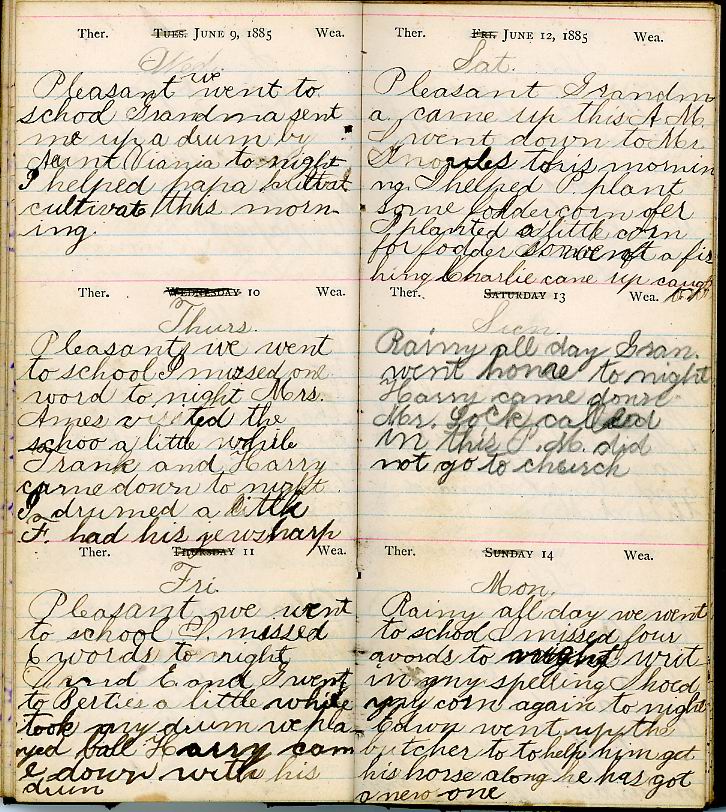 Ther. Tues. June 9, 1885 Wea.
Wed.
Pleasant we went to
school Grandma sent
me up a drum by
Aunt Viania to night
I helped papa
cultivate this morn-
ing.
Ther. Wednesday 10 Wea.
Thurs.
Pleasant, we went
to school I missed one
word to night Mrs.
Ames visited the
schoo a little while
Frank and Harry
came down to night
I drumed a little
F. had his jewsharp
Ther. Thursday 11 Wea.
Fri.
Pleasant we went
to school I missed
6 words to night
E. and I went
to Berties a little while
took my drum we pla
yed ball Harry cam
e down with his
drum
Ther. Fri. June 12, 1885 Wea.
Sat.
Pleasant Grandm
a. came up this A.M.
I went down to Mr.
this mornin
ng. I helped P. plant
some foddercorn
I planted a little corn
for fodder went a fis
hing Charlie cane up caugt
Ther. Saturday 13 Wea.
Sun.
Rainy all day Gran.
went home to night
Harry came down
Mr. Lock called
in this P.M. did
not go to church
Ther. Sunday 14 Wea.
Mon.
Rainy all day we went
to school I missed four
words to writ
in my spelling I hoed
my corn again to night
went up the
butcher to to help him get
his horse along he has got
a new one